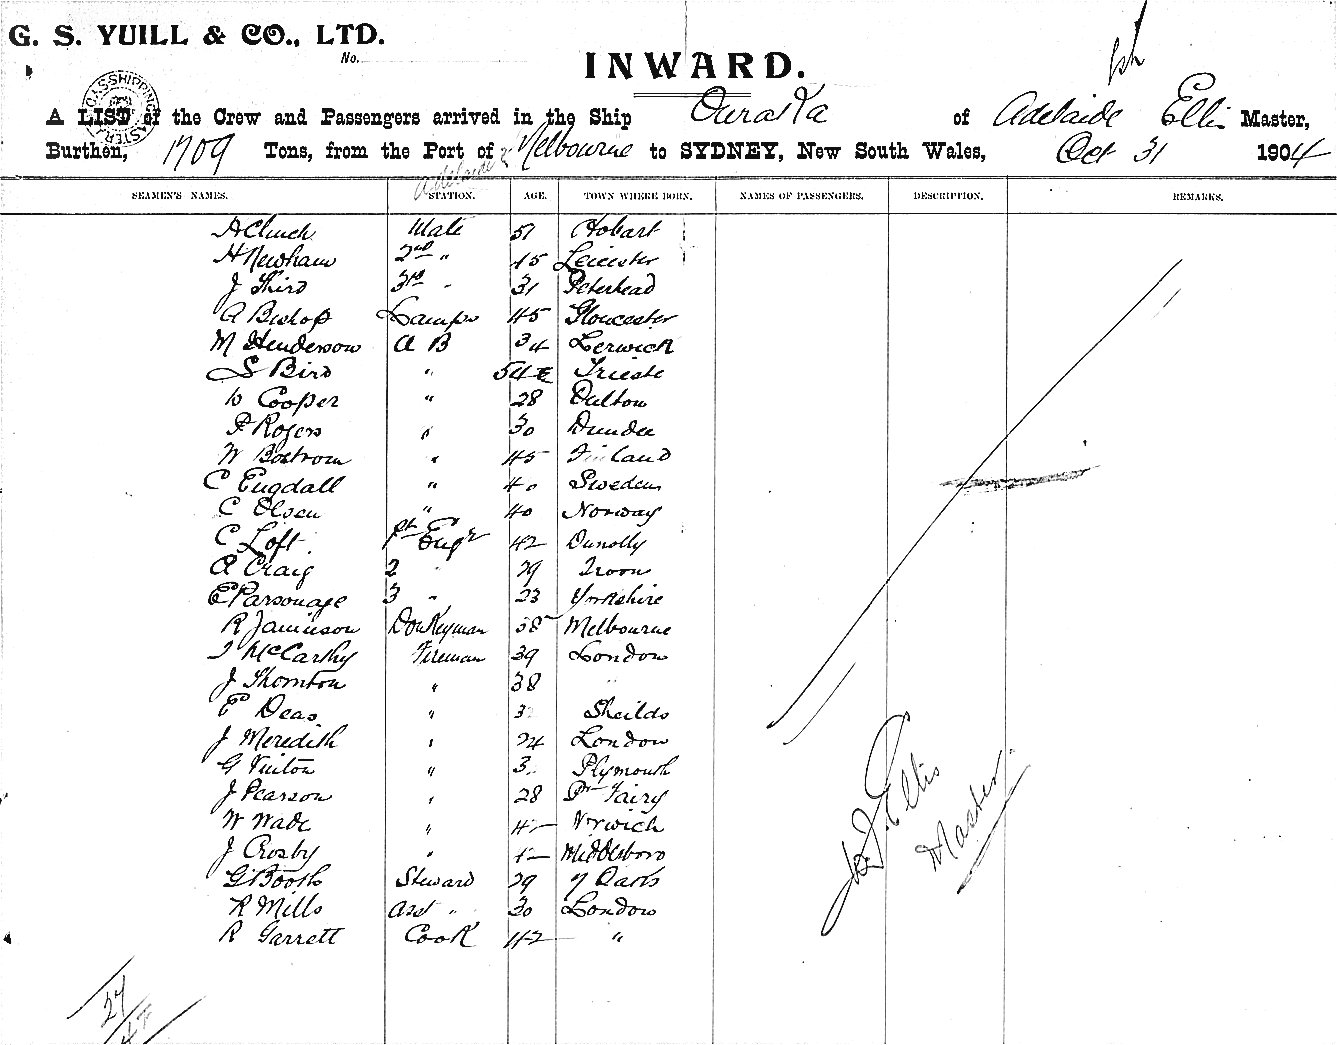 G. S. YUILL & CO., LTD.
No.
INWARD.
A LIST of the Crew and Passengers arrived in the Ship Ouraka of Adelaide Ellis Master,
Burthen, 1709 Tons, from the Port of Adelaide & Melbourne to SYDNEY, New South Wales, Oct 31 1904
SEAMEN'S NAMES. STATION. AGE. TOWN WHERE BORN. NAMES OF PASSENGERS. DESCRIPTION. REMARKS.
A Clinch Mate 51 Hobart
H Newham 2nd " 45 Leicester
J Third 3rd " 31 Peterhead
A Bishop Lamps 45 Gloucester
M Henderson A B 34 Lerwick
S Bird " 54 Trieste
D Cooper " 28 Dalton
P Rogers " 30 Dundee
W Bostrom " 45 Finland
C Engdall " 40 Sweden
C Olsen " 40 Norway
C Loft 1st Engr 42 Dunolly
A Craig 2 " 29 Troon
E Parsonage 3 " 23 Yorkshire
R Jamieson Donkeyman 38 Melbourne
J McCarthy Fireman 39 London
J Thornton " 38 "
E Deas " Sheilds
J Meredith " 24 London
G Vinton " Plymouth
J Pearson " 28 Pt Fairy
W Wade " Norwich
J Crosby " Middlesboro
G Booth Steward 29 7 Oaks
R Mills Asst " 30 London
R Garrett Cook 42 "
Ellis
Master
27